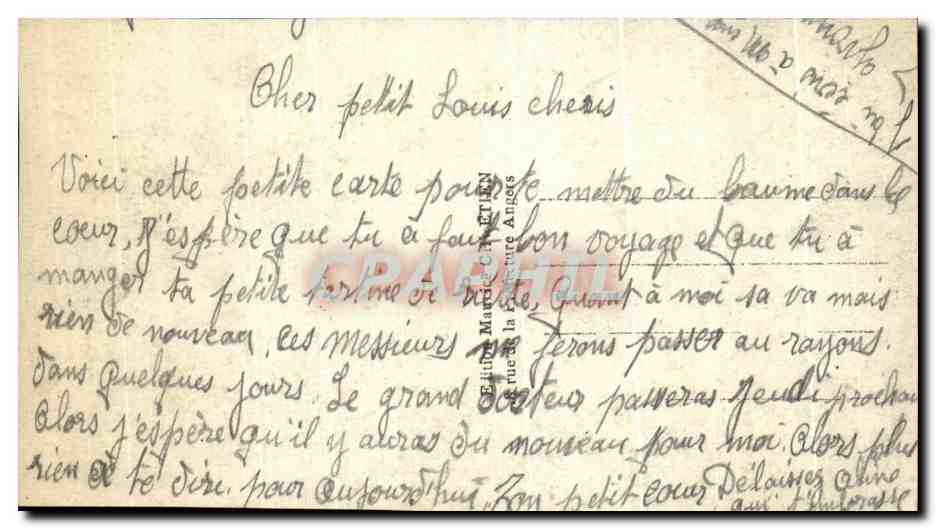 Cher petit Louis cheris
Voici cette petite carte pour te mettre du baume dans le
coeur, J'éspère que tu à fait bon voyage et que tu à
manger ta petite tartine de Quant à moi sa va mais
rien de nouveau, ces Messieurs me ferons passer au rayons.
dans quelques jours. Le grand docteur passeras jeudi prochain
Alors j'espère qu'il y auras du nouveau pour moi. Alors plus
rien à te dire. pour aujourd'hui. Ton petit coeur Délaissez Anne
qui t'embrasse
Edition Maurice CHRÉTIEN
rue de la Préfecture Angers
CPAPHIL